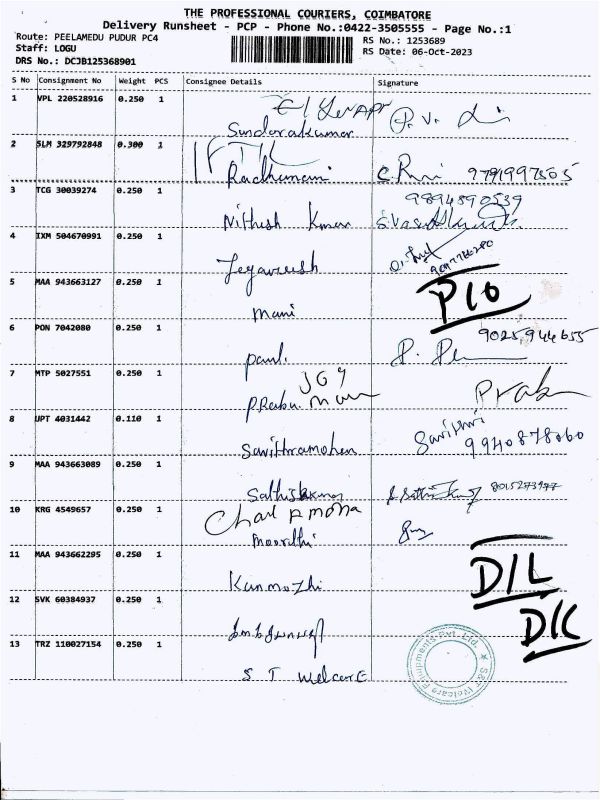 THE PROFESSIONAL COURIERS, COIMBATORE
Delivery Runsheet - PCP - Phone No.:0422-3505555 - Page No.:1
Route: PEELAMEDU PUDUR PC4
RS No.: 1253689
Staff: LOGU
RS Date: 06-Oct-2023
DRS No.: DCJB125368901
S No Consignment No Weight PCS Consignee Details Signature
1 VPL 220528916 0.250 1
Sundarakumar P.V.
2 SLM 329792848 0.300 1
Radhamani 9791997505
9894590539
3 TCG 30039274 0.250 1
Nithish Kumar
4 IXM 504670991 0.250 1
Jegadeesh
5 MAA 943663127 0.250 1
Mani
6 PON 7042080 0.250 1
9025944655
Paul.
7 MTP 5027551 0.250 1
P.Rabu. Prabu
8 UPT 4031442 0.110 1
Savithramohan Savithri
9940878060
9 MAA 943663089 0.250 1
Sathishkumar
10 KRG 4549657 0.250 1
Moorthi
11 MAA 943662295 0.250 1
D/L
Kanmozhi
12 SVK 60384937 0.250 1
13 TRZ 110027154 0.250 1
S T Welcare
S&T Welcare Equipments Pvt. Ltd.